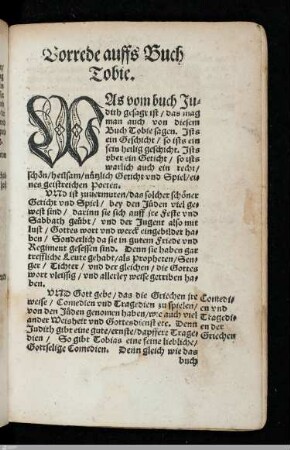 Vorrede auffs Buch
Tobie.
WAs vom buch Ju-
dith gesagt ist / das mag
man auch von diesem
Buch Tobie sagen. Ists
ein Geschicht / so ists ein
fein heilig geschicht. Ists
aber ein Geticht / so ists
warlich auch ein recht /
schön / heilsam / nützlich Geticht vnd Spiel / ei-
nes geistreichen Poeten.
VNd ist zuuermuten / das solcher schöner
Geticht vnd Spiel / bey den Jüden viel ge-
west sind / darinn sie sich auff jre Feste vnd
Sabbath geübt / vnd der Jugent also mit
lust / Gottes wort vnd werck eingebildet ha-
ben / Sonderlich da sie in gutem Friede vnd
Regiment gesessen sind. Denn sie haben gar
treffliche Leute gehabt / als Propheten / Sen-
ger / Tichter / vnd der gleichen / die Gottes
wort vleissig / vnd allerley weise getrieben ha-
ben.
VND Gott gebe / das die Griechen jre
weise / Comedien vnd Tragedien zuspielen /
von den Jüden genomen haben / wie auch viel
ander Weisheit vnd Gottesdienst etc. Denn
Judith gibt eine gute / ernste / dapffere Trage-
dien / So gibt Tobias eine feine liebliche /
Gottselige Comedien. Denn gleich wie das
buch
Comedi-
en vnd
Tragedi-
en der
Griechen